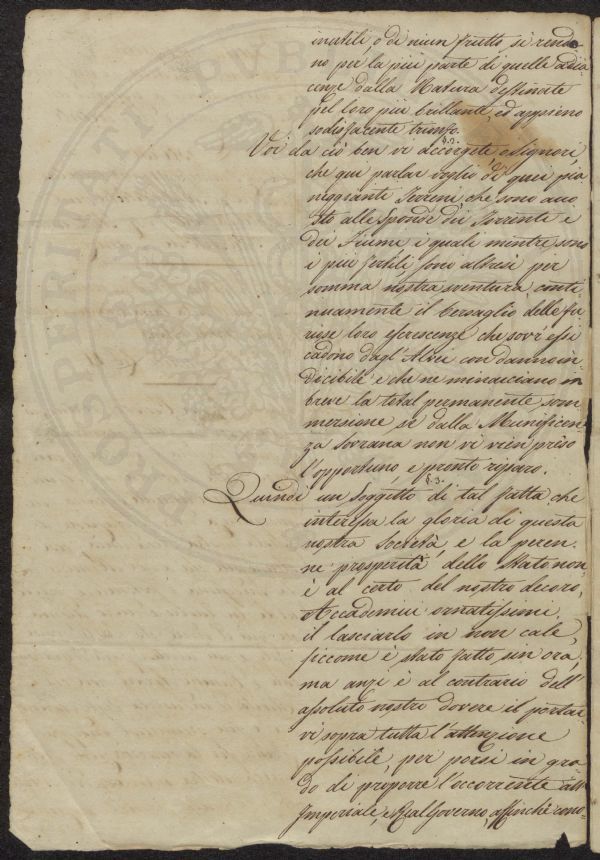 inutili, o di niun frutto, si rendo
no per la più parte di quelle adia
cenze dalla Natura destinate
pel loro più brillante, ed appieno
sodisfacente trionfo.
§.2.
Voi da ciò ben vi accorgete, o Signori,
che qui parlar voglio di quei pia
neggianti Terreni che sono acco
sto alle Sponde dei Torrenti e
dei Fiumi i quali mentre sono
i più fertili, sono altresì per
somma nostra sventura conti
nuamente il bersaglio delle fu
riose loro escrescenze che sovr'essi
cadono dagl'Alvei con danno in
dicibile e che ne minacciano in
breve la total permanente som
mersione se dalla Munificen
za Sovrana non vi vien preso
l'opportuno, e pronto riparo.
§.3.
Quindi un Soggetto di tal fatta che
interessa la gloria di questa
nostra Società, e la peren
ne prosperità dello Stato non
è al certo del nostro decoro,
Accademici ornatissimi,
il lasciarlo in non cale,
siccome è stato fatto sin ora,
ma anzi è al contrario dell'
assoluto nostro dovere il portar
vi sopra tutta l'attenzione
possibile, per porsi in gra
do di proporre l'occorrente all'
Imperiale, e Real Governo, affinchè cono-
PVB
PROSPERITATI